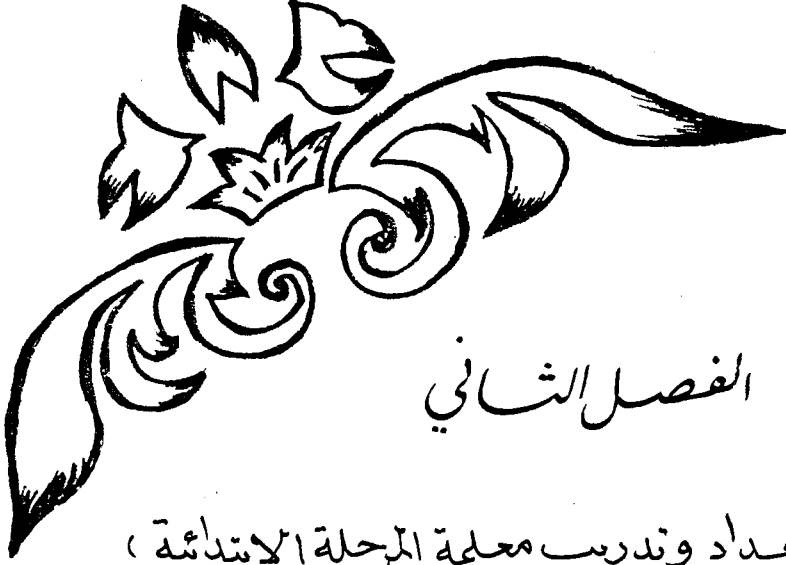 الفصل الثاني
وتدريب معلمة المرحلة الابتدائية )